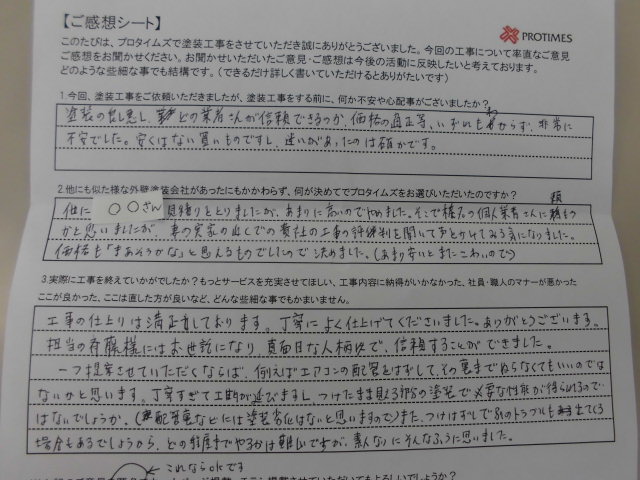 【ご感想シート】
PROTIMES
このたびは、プロタイムズで塗装工事をさせていただき誠にありがとうございました。今回の工事について率直なご意見
ご感想をお聞かせください。お聞かせいただいたご意見・ご感想は今後の活動に反映したいと考えております。
どのような些細な事でも結構です。(できるだけ詳しく書いていただけるとありがたいです)
1.今回、塗装工事をご依頼いただきましたが、塗装工事をする前に、何か不安や心配事がございましたか?
塗装の良し悪し、どの業者さんが信頼できるのか、価格の適正等、いずれもわからず、非常に
不安でした。安くはない買いものですし、迷いがあったのは確かです。
2.他にも似た様な外壁塗装会社があったにもかかわらず、何が決めてでプロタイムズをお選びいただいたのですか?
他に〇〇さん見積りをとりましたが、あまりに高いのでやめました。そこで 個人業者さんに頼もう
かと思いましたが、妻の実家の近くでの貴社の工事の評判を聞いて声をかけてみる気になりました。
価格も「まあそうかな」と思えるものでしたので決めました。(あまり安いとまたこわいので)
3.実際に工事を終えていかがでしたか?もっとサービスを充実させてほしい、工事内容に納得がいかなかった、社員・職人のマナーが悪かった
ここが良かった、ここは直した方が良いなど、どんな些細な事でもかまいません。
工事の仕上りは満足しております。丁寧によく仕上げてくださいました。ありがとうございます。
担当の斉藤様にはお世話になり、真面目な人柄ゆえ、信頼することができました。
一つ提案させていただくならば、例えばエアコンの配管をはずして、その裏までぬらなくてもいいのでは
ないかと思います。丁寧すぎて工期が延びますし、つけたまま見える部分の塗装で必要な性能が得られるので
はないでしょうか。(配管裏などには塗装劣化はないと思いますので)また、つけはずしで別のトラブルも出てくる
場合もあるでしょうから、どの程度までやるかは難しいですが、素人なりにそんなふうに思いました。
これならokです